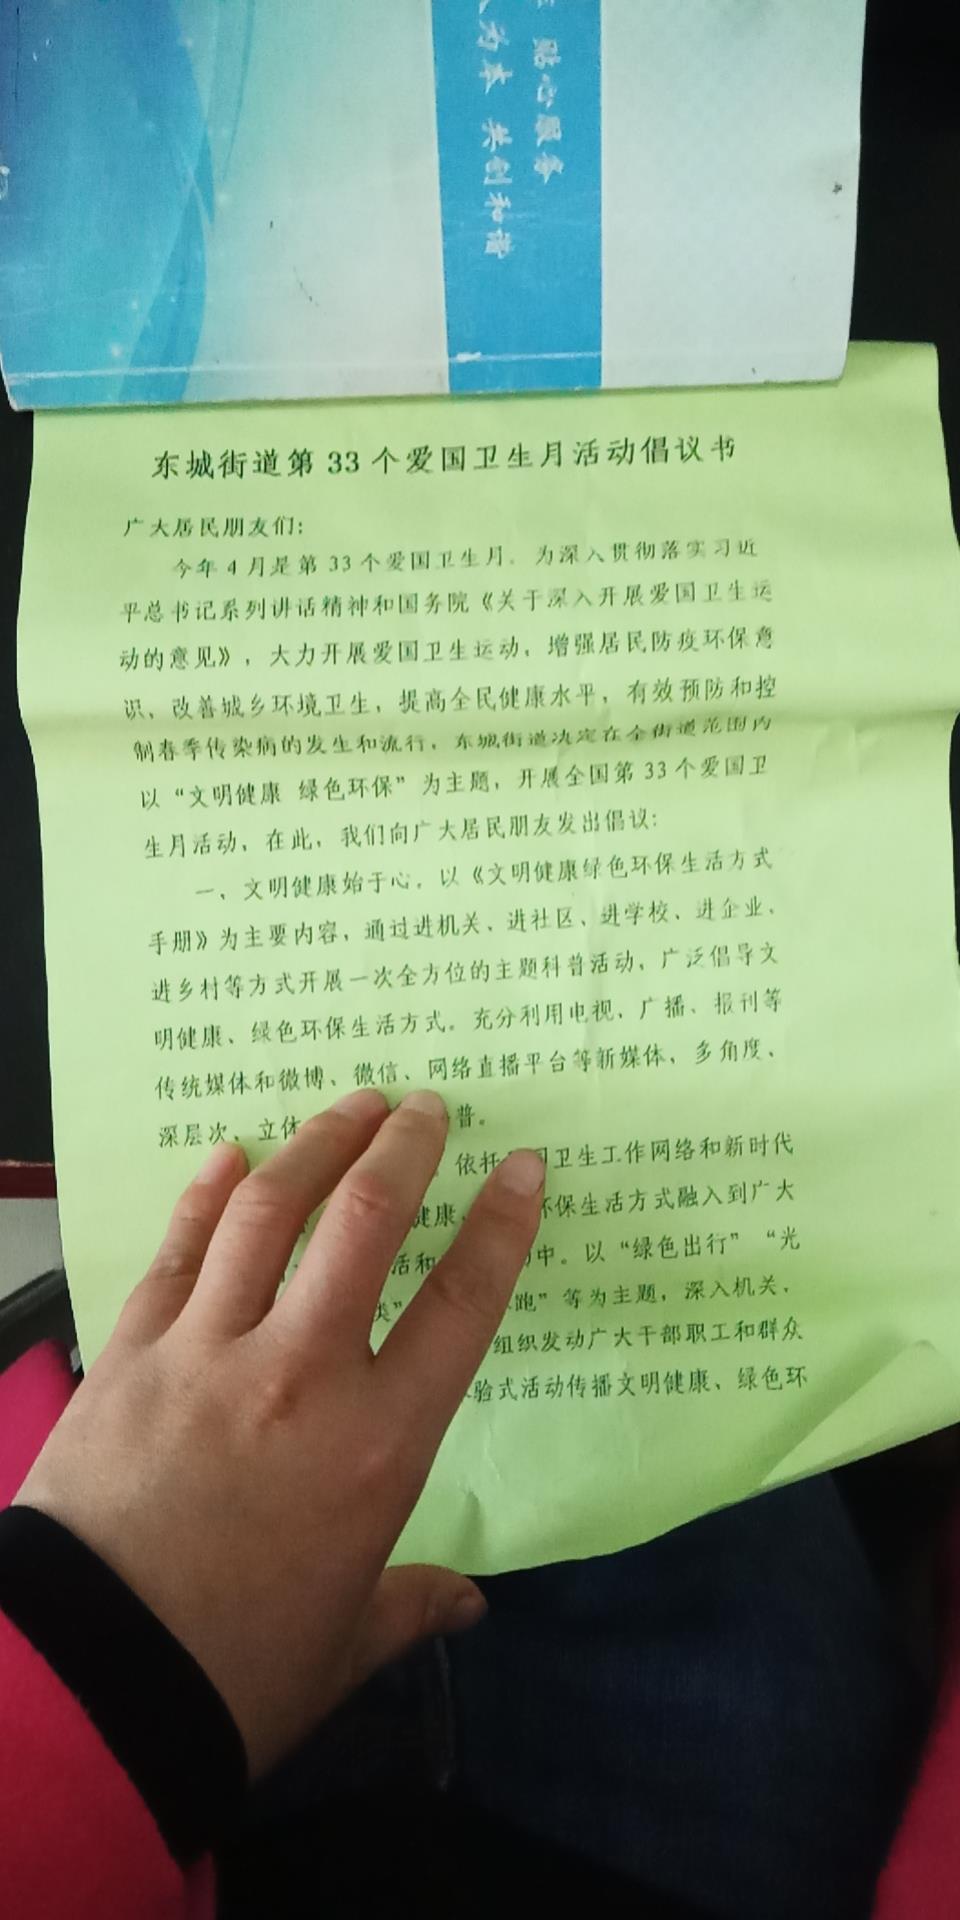 贴心服务
为本 共创和谐
东城街道第 33 个爱国卫生月活动倡议书
广大居民朋友们：
今年 4 月是第 33 个爱国卫生月。为深入贯彻落实习近
平总书记系列讲话精神和国务院《关于深入开展爱国卫生运
动的意见》，大力开展爱国卫生运动，增强居民防疫环保意
识、改善城乡环境卫生，提高全民健康水平，有效预防和控
制春季传染病的发生和流行，东城街道决定在全街道范围内
以“文明健康 绿色环保”为主题，开展全国第 33 个爱国卫
生月活动，在此，我们向广大居民朋友发出倡议：
一、文明健康始于心。以《文明健康绿色环保生活方式
手册》为主要内容，通过进机关、进社区、进学校、进企业、
进乡村等方式开展一次全方位的主题科普活动，广泛倡导文
明健康、绿色环保生活方式。充分利用电视、广播、报刊等
传统媒体和微博、微信、网络直播平台等新媒体，多角度、
深层次、立体 普。
依托 国卫生工作网络和新时代
健康、 环保生活方式融入到广大
活和 中。以“绿色出行”“光
类” 跑”等为主题，深入机关、
组织发动广大干部职工和群众
验式活动传播文明健康、绿色环